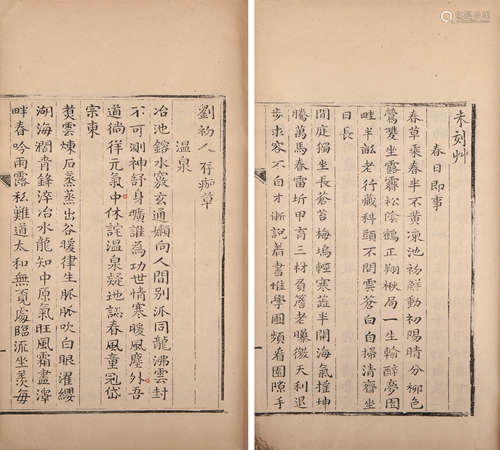 未刻艸
春日即事
春草乘春半不黃凍池初鮮動初陽晴分柳色
鶯雙坐露霽松陰鶴正翔楸局一生輸醉夢園
畦半畝老行藏科頭不閉雲蒼白白掃清齋坐
日長
閒庭獨坐長蒼苔梅塢輕寒蓝半開海氣撞坤
騰萬馬春雷圻甲育三材芻蕘老曝微天利退
步求容不白才漸說著書惟學圃頻看園隙手
劉初人 存痴草
溫泉
冶池鎔水竅玄通嬾向人間別派同龍沸雲封
不可測神舒身曠誰為功世情寒暖風塵外吾
道徜徉元氣中休詫溫泉疑地誌春風童冠岱
宗東
焚雲煉石蒸蒸出谷暖律生脈脈吹白眼濯纓
湖海闊青鋒淬冶水龍知中原氣旺風霜盡澤
畔春吟雨露私難道太和無覓處臨流坐羨每